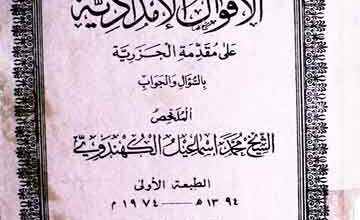 الأقوال الإمدادية
على مقدمة الجزرية
بالسؤال والجواب
الملخص
الشيخ محمد اسماعيل الكهندوي
الطبعة الأولى
١٣٩٤ ھ - ١٩٧٤ م